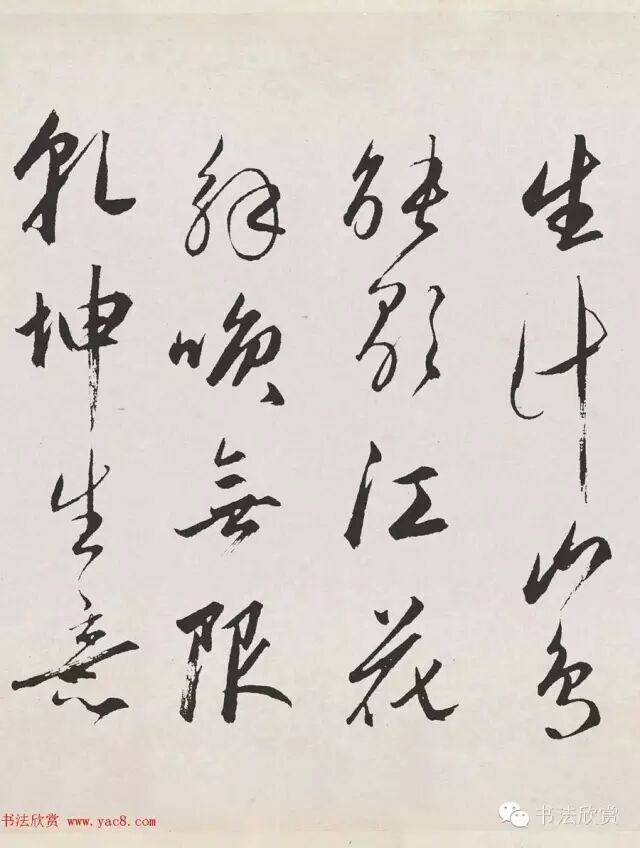 生計山鳥
能歌江花
解咲無限
乾坤生意
书法欣赏 www.yac8.com
书法欣赏